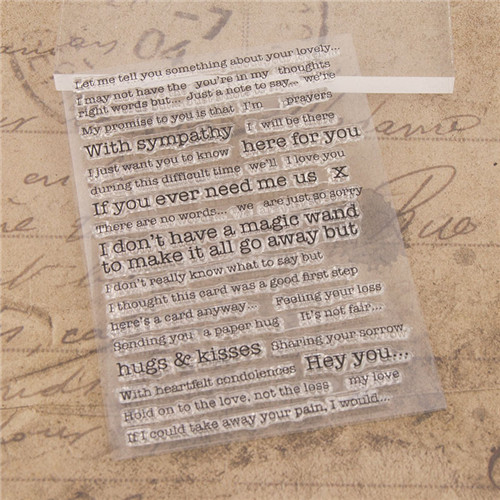 04
Let me tell you something about your lovely...
I may not have the you're in my thoughts
right words but... Just a note to say... we're
My promise to you is that I'm prayers
With sympathy I will be there
here for you
I just want you to know
during this difficult time we'll I love you
If you ever need me us X
There are no words... we are just so sorry
I don't have a magic wand
to make it all go away but
I don't really know what to say but
I thought this card was a good first step
here's a card anyway... Feeling your loss
Sending you a paper hug It's not fair...
hugs & kisses Sharing your sorrow
Hey you...
With heartfelt condolences my love
Hold on to the love, not the loss
If I could take away your pain, I would...